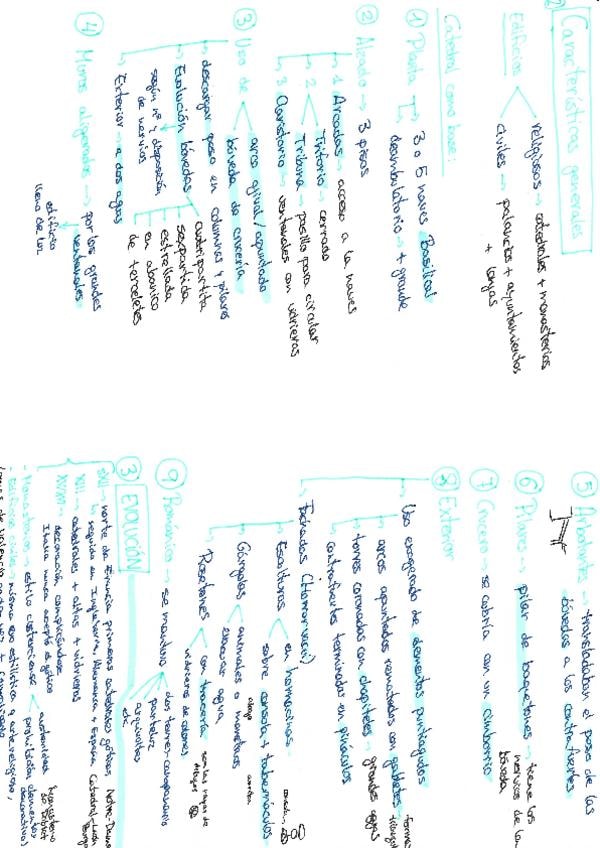 2 Características generales
Edificios
religiosos → catedrales + monasterios
civiles → palacetes + ayuntamientos
+ lonjas
Catedral como base:
① Planta
3 o 5 naves Basilical
deambulatorio → + grande
② Alzado → 3 pisos
1 Arcadas → acceso a la naves
2
Triforio → cerrado
Tribuna → pasillo para circular
3 Claristorio → ventanales con vidrieras
③ Uso de
arco ojival / apuntado
bóveda de crucería
descargar peso en columnas y pilares
Evolución bóvedas
según nº y disposición
de nervios
cuatripartita
sexpartida
estrellada
en abanico
de terceletes
Exterior → a dos aguas
④ Muros aligerados → por los grandes
ventanales
edificio
lleno de luz
⑤ Arbotantes → transladaban el peso de las
bóvedas a los contrafuertes
⑥ Pilares → pilar de baquetones → tiene los
nervios de la
bóveda
⑦ Crucero → se cubría con un cimborrio
⑧ Exterior
Uso exagerado de elementos puntiagudos
arcos apuntados rematados con gabletes
torres coronadas con chapiteles → grandes agujas
contrafuertes terminados en pináculos
Fachadas (Horror vacui)
Esculturas
en hornacinas
sobre consola + tabernáculos
Gárgolas
animales o monstruos
evacuar agua
Rosetones
con tracería
vidrieras de colores
⑨ Románico → se mantuvo
dos torres campanario
parteluz
arquivoltas
etc.
3 EVOLUCIÓN
XII → norte de Francia primeras catedrales góticas Notre-Dame
seguida en Inglaterra, Alemania + España Catedral León
Burgos
XIII → catedrales + altas + vidrieras
XV/XVI → decoración complicándose
Italia nunca aceptó el gótico
Monasterios → estilo cisterciense
austeridad
prohibición elementos
decorativos
Monasterio
de Poblet